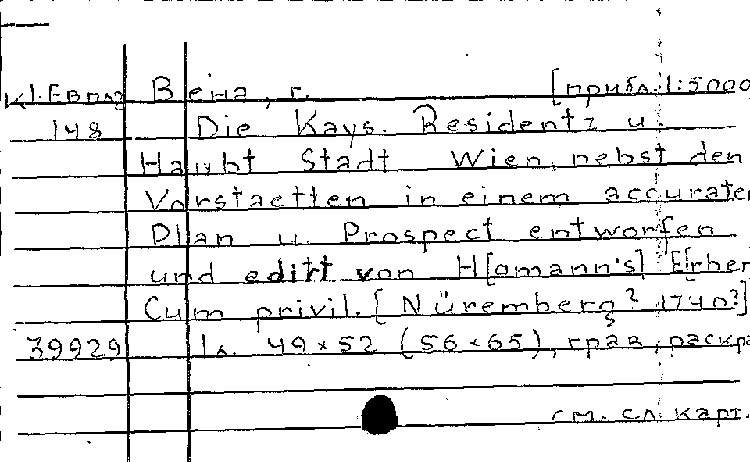 К1.Евр Вена, г. [прибл. 1:5000
148 Die Kays. Residentz u.
Haubt Stadt Wien, nebst den
Vorstaetten in einem accuraten
Plan u. Prospect entworfen
und edirt von H[omann's] Erben
Cum privil. [Nüremberg? 1740?]
39929 1л. 49×52 (56×65), грав., раскра
см. сл. карт.